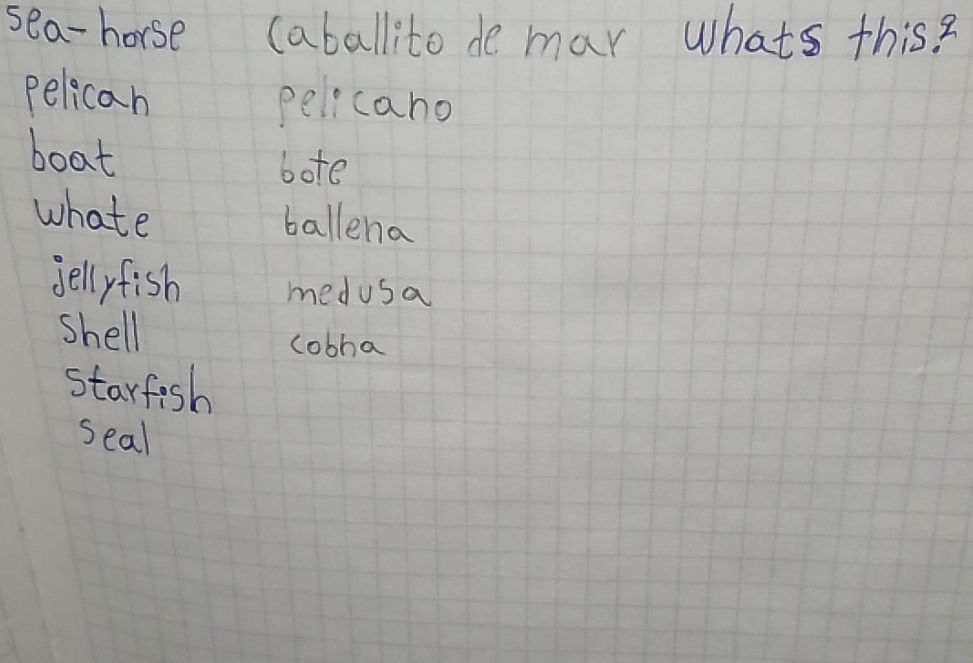 sea-horse caballito de mar whats this?
pelican pelicano
boat bote
whate ballena
jellyfish medusa
shell cobha
starfish
seal